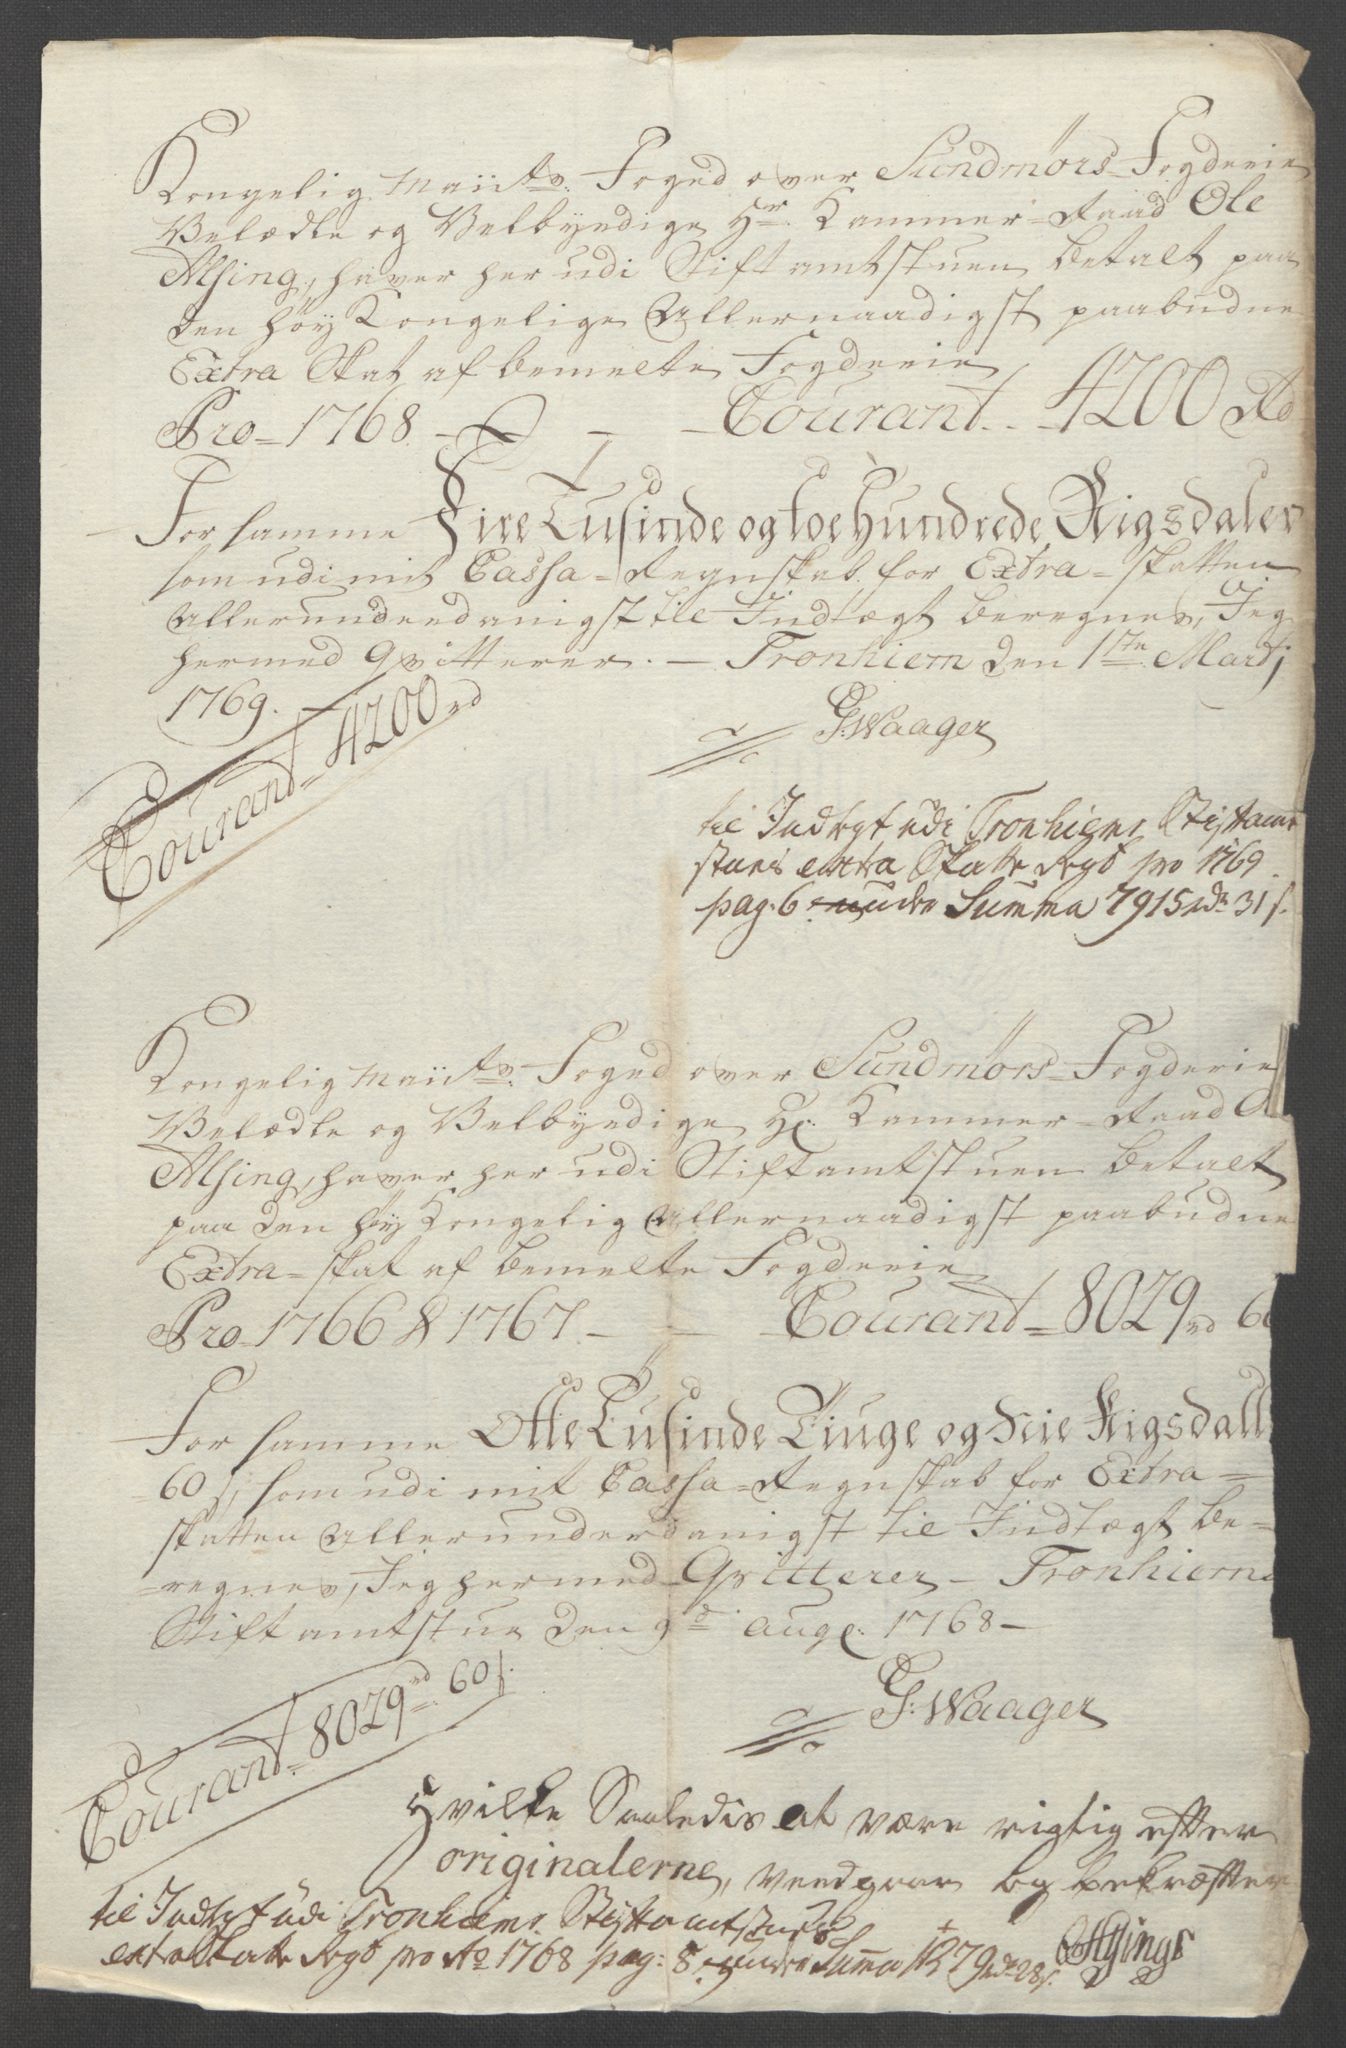 Kongelig Maiits. Foged over Sundmørs-Fogderie
Velædle og Velbyrdige Hr. Kammer-Raad Ole
Alsing, haver her udi Stiftamtstuen betalt paa
den høy Kongelige Allernaadigst paabudne
Extra Skat af bemelte Fogderie
Pro-1768. - - - Courant. - 4200 Rd
For samme Fire Tusinde og toe Hundrede Rigsdaler
som udi mit Cassa-Regnskab for Extra-skatten
Allerunderdanigst til Indtægt beregnes, Jeg
hermed Qvitterer. - Tronhiem den 17te Martj
1769.
G: Waager
Courant 4200 rd
til Indtegt udi Tronhiems Stiftamt
stues extra Skatte Regs pro 1769
pag: 6 under Summa 7915 rdr 31 s.
Kongelig Maiits. Foged over Sundmørs-Fogderie
Velædle og Velbyrdige Hr. Kammer-Raad O
Alsing, haver her udi Stiftamtstuen betalt
paa den høy Kongelig Allernaadigst paabudne
Extra-skat af bemelte Fogderie
Pro 1766 & 1767. - - Courant = 8029 rd 60
For samme Otte Tusinde Tiuge og Nie Rigsdall
60 s, som udi mit Cassa-Regnskab for Extra=
skatten Allerunderdanigst til Indtægt be=
=regnes, Jeg hermed Qvitterer - Tronhiems
Stiftamtstue den 9d aug. 1768 -
G: Waager
Courant 8029 rd. 60 s.
Hvilke Saaledis at være rigtig efter
originalerne, veedgaar og bekræfter
til Indtegt udi Tronhiems Stiftamtstues
extra Skatte Regs pro Ao 1768 pag: 8 under Summa
OAlsing